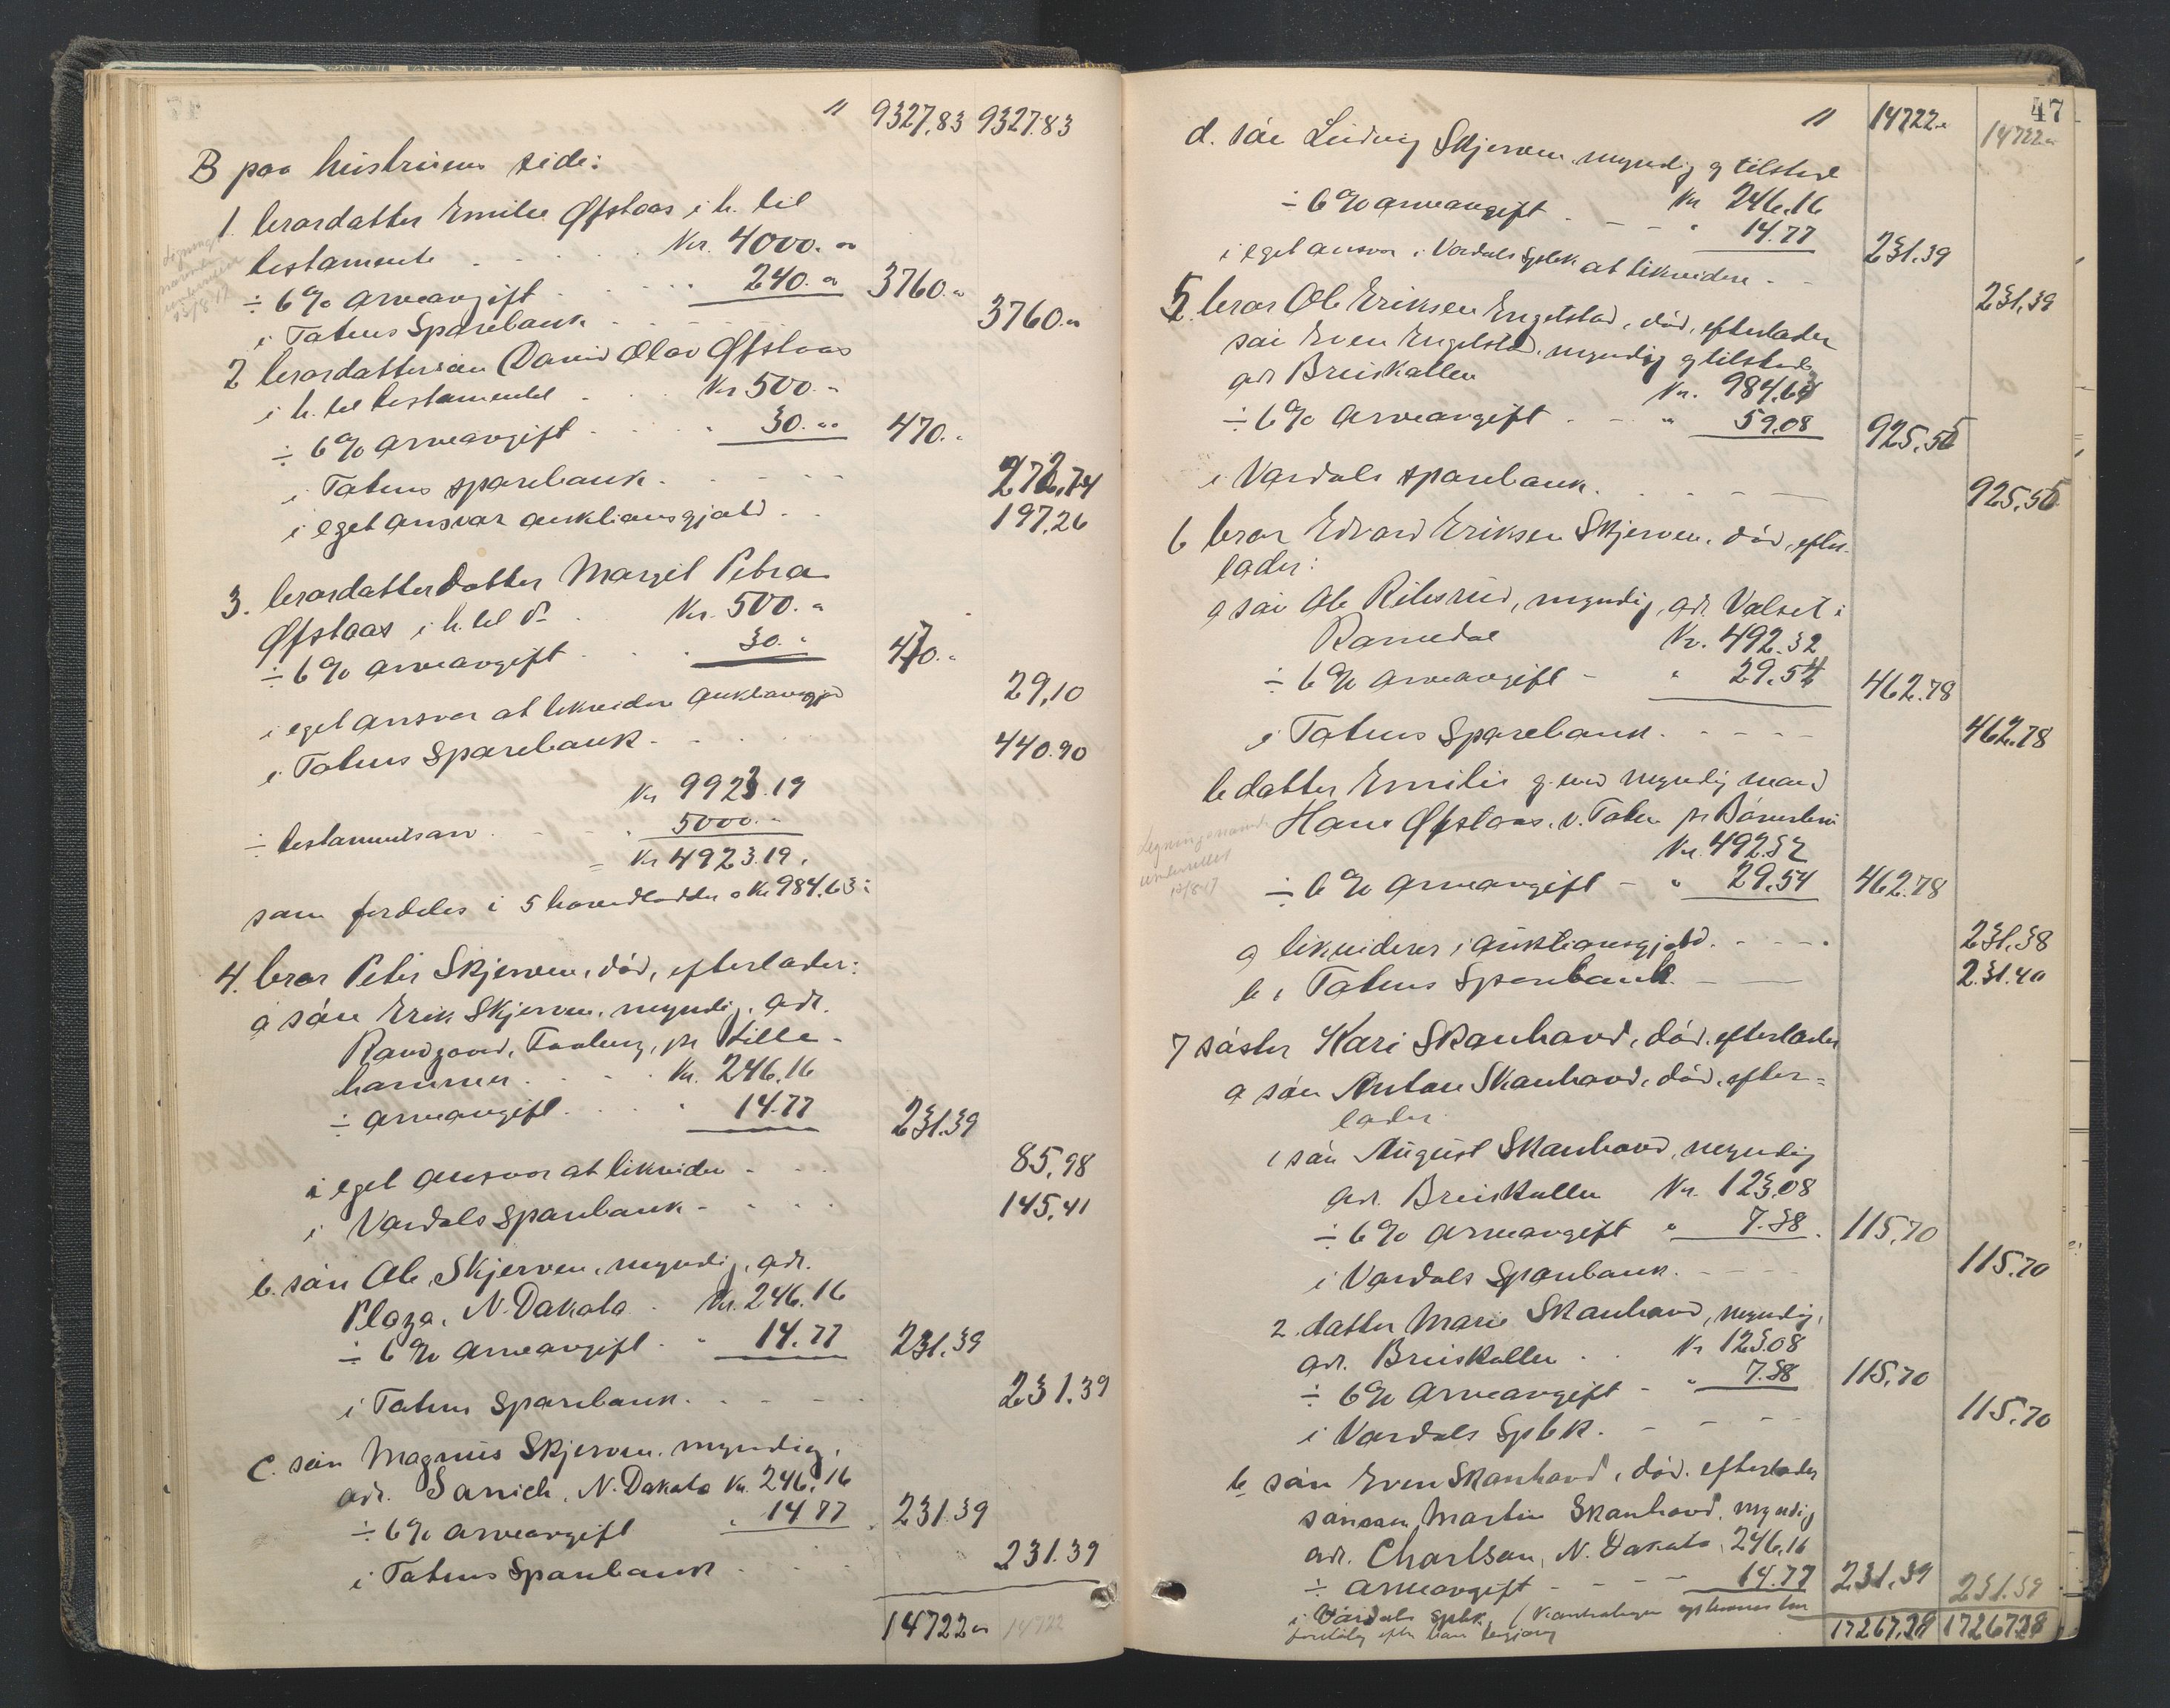 " 9327,83 9327.83
B paa hustruens side:
1. brordatter Emilie Øfstaas i h. til
testamente Kr. 4000.00
÷ 6% arveavgift 240.00 3760.00
i Totens Sparebank 3760.00
2 brordattersøn David Olav Øfstaas
i h. til testamentet Kr 500.-
÷ 6% arveavgift 30.00 470.-
i Totens sparebank 272,74
i eget ansvar auktionsgjæld 197,26
3. brordatterdatter Margit Petra
Øfstaas i h. til do Kr. 500.-
÷ 6% arveavgift 30.- 470.-
i eget ansvar at likvidere auktionsgjæld 29,10
i Totens Sparebank 440.90
Kr 9923.19
÷ testamentsarv 5000.-
= Kr 4923.19.
som fordeles i 5 hovedlodder a Kr 984.63:
4. bror Peter Skjerven, død, efterlader:
a søn Erik Skjerven, myndig, adr.
Randgaard, Faaberg, pr Lille-
hammer Kr. 246,16
÷ arveavgift 14.77 231.39
i eget ansvar at likvidere 85,98
i Vardals Sparebank 145,41
b. søn Ole Skjerven, myndig, adr.
Plaza, N. Dakota Kr. 246.16
÷ 6% arveavgift 14.77 231.39
i Totens Sparebank 231.39
c. søn Magnus Skjerven, myndig,
adr. Sanich, N. Dakota Kr. 246,16
÷ 6% arveavgift 14.77 231.39
i Totens Sparebank 231.39
14722.00 14722
47
d. søn Ludvig Skjerven, myndig og tilstede " 14722.- 14722.00
Kr 246.16
÷ 6% arveavgift 14.77 231.39
i eget ansvar i Vardals Spbk at likvidere 231,39
5. bror Ole Eriksen Engelstad, død, efterlader
søn Even Engelstad, myndig og tilstede
adr Bruskallen Kr. 984,63
÷ 6% arveavgift 59.08 925.55
i Vardals sparebank 925,55
6 bror Edvard Eriksen Skjerven, død, efter-
lader:
a søn Ole Rilesrud, myndig, adr. Valset i
Romedal Kr. 492.32
÷ 6% arveavgift 29.54 462.78
i Totens Sparebank 462.78
b datter Emilie g. m. myndig mand
Hans Øfstaas, V. Toten pr Bøverbru
Kr. 492.32
÷ 6% arveavgift 29.54 462.78
a likviderer i auktionsgjæld 231,38
b i Totens Sparebank 231.40
7 søster Kari Skanhaud, død, efterlader
a søn Anton Skanhaud, død, efter-
lader
1 søn August Skanhaud, myndig
adr. Bruskallen Kr. 123.08
÷ 6% arveavgift 7.38 115,70
i Vardals Sparebank 115.70
2. datter Marie Skanhaud, myndig,
adr. Bruskallen Kr 123.08
÷ 6% arveavgift 7.38 115,70
i Vardals Spbk. 115.70
b søn Even Skanhaud, død, efterlader
sønnen Martin Skanhaud, myndig
adr. Charlson, N. Dakota 246,16
÷ arveavgift 14.77 231.39 231.39
i Vardals Spbk.
17267.28 17267.28